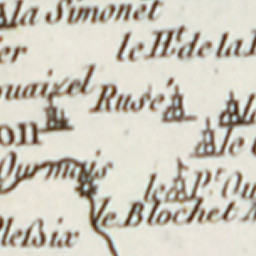 la Simonet
er le H.t de la
ouaixel
Rusé
on
le
Ourmais
le P.t Ou
le Blochet
Pleßix